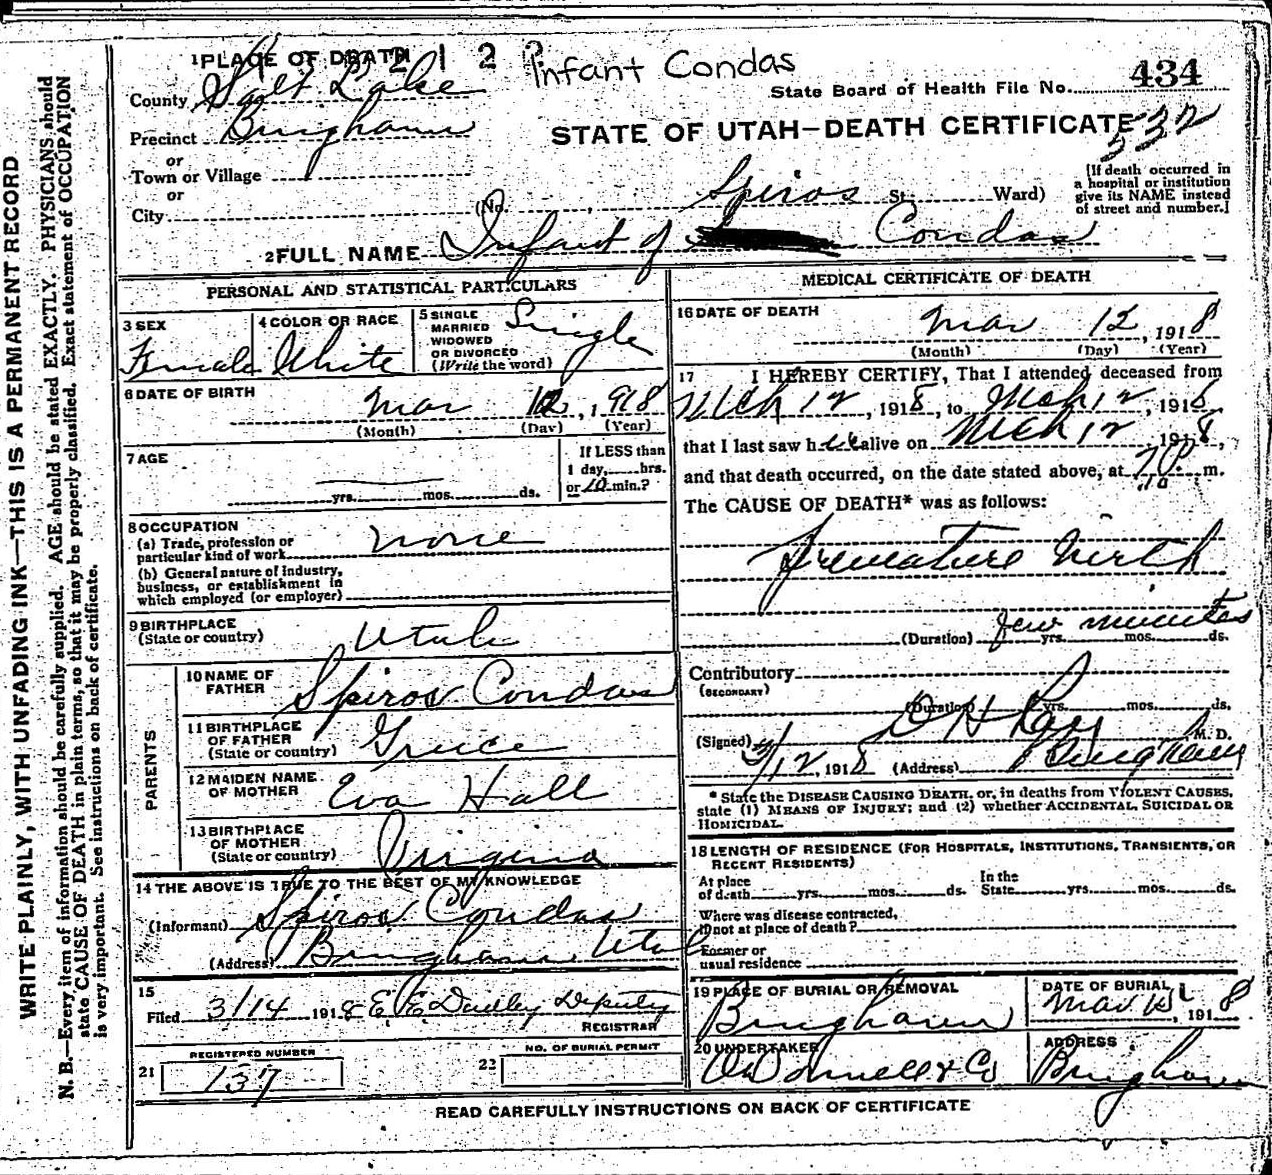 1 PLACE OF DEATH
2 1 2
Infant Condas
434
County Salt Lake
State Board of Health File No.
Precinct Bingham
STATE OF UTAH—DEATH CERTIFICATE
532
or
Town or Village
or
City
(No. Spiros St. Ward)
[If death occurred in
a hospital or institution
give its NAME instead
of street and number.]
2 FULL NAME Infant of Condas
PERSONAL AND STATISTICAL PARTICULARS
3 SEX
Female
4 COLOR OR RACE
White
5 SINGLE
MARRIED
WIDOWED
OR DIVORCED
(Write the word)
Single
6 DATE OF BIRTH
Mar 12, 1918
(Month) (Day) (Year)
7 AGE
yrs. mos. ds.
If LESS than
1 day, hrs.
or 10 min.?
8 OCCUPATION
(a) Trade, profession or
particular kind of work none
(b) General nature of industry,
business, or establishment in
which employed (or employer)
9 BIRTHPLACE
(State or country) Utah
PARENTS
10 NAME OF
FATHER Spiros Condas
11 BIRTHPLACE
OF FATHER
(State or country) Greece
12 MAIDEN NAME
OF MOTHER Eva Hall
13 BIRTHPLACE
OF MOTHER
(State or country) Virginia
14 THE ABOVE IS TRUE TO THE BEST OF MY KNOWLEDGE
(Informant) Spiros Condas
(Address) Bingham, Utah
15
Filed 3/14 1918 E. E. Dudley Deputy
REGISTRAR
21 REGISTERED NUMBER
137
22 NO. OF BURIAL PERMIT
MEDICAL CERTIFICATE OF DEATH
16 DATE OF DEATH
Mar 12, 1918
(Month) (Day) (Year)
17 I HEREBY CERTIFY, That I attended deceased from
Mch 12, 1918, to Mch 12, 1918
that I last saw her alive on Mch 12, 1918,
and that death occurred, on the date stated above, at m.
The CAUSE OF DEATH* was as follows:
Premature birth
(Duration) few minutes yrs. mos. ds.
Contributory
(SECONDARY)
(Duration) yrs. mos. ds.
(Signed) D H Ray M. D.
3/12, 1918 (Address) Bingham
* State the DISEASE CAUSING DEATH, or, in deaths from VIOLENT CAUSES,
state (1) MEANS OF INJURY; and (2) whether ACCIDENTAL, SUICIDAL OR
HOMICIDAL.
18 LENGTH OF RESIDENCE (FOR HOSPITALS, INSTITUTIONS, TRANSIENTS, OR
RECENT RESIDENTS)
At place
of death yrs. mos. ds.
In the
State yrs. mos. ds.
Where was disease contracted,
if not at place of death?
Former or
usual residence
19 PLACE OF BURIAL OR REMOVAL
Bingham
DATE OF BURIAL
Mar 1918
20 UNDERTAKER
O'Donnell & Co
ADDRESS
Bingham
READ CAREFULLY INSTRUCTIONS ON BACK OF CERTIFICATE
WRITE PLAINLY, WITH UNFADING INK—THIS IS A PERMANENT RECORD
N. B.—Every item of information should be carefully supplied. AGE should be stated EXACTLY. PHYSICIANS should
state CAUSE OF DEATH in plain terms, so that it may be properly classified. Exact statement of OCCUPATION
is very important. See instructions on back of certificate.